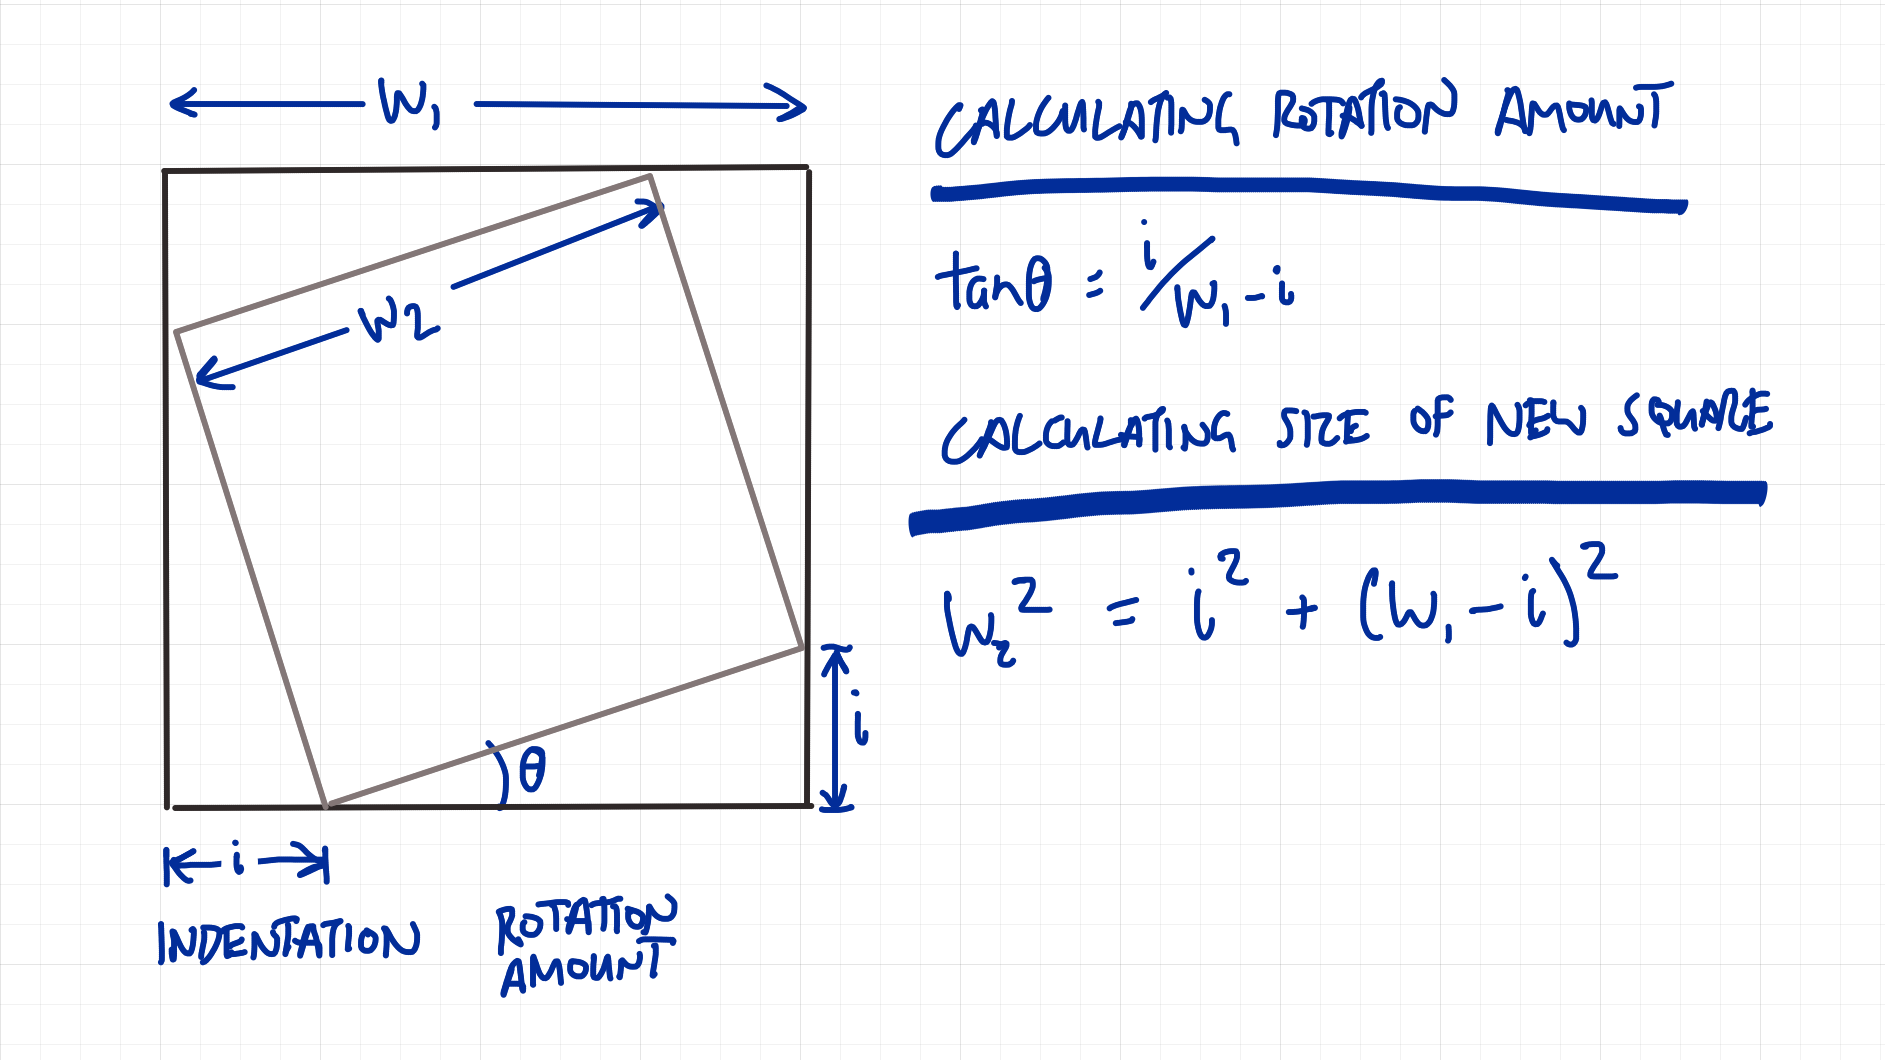 W₁
W2
θ
i
i
INDENTATION
ROTATION
AMOUNT
CALCULATING ROTATION AMOUNT
tanθ = i/W₁-i
CALCULATING SIZE OF NEW SQUARE
W₂² = i² + (W₁-i)²